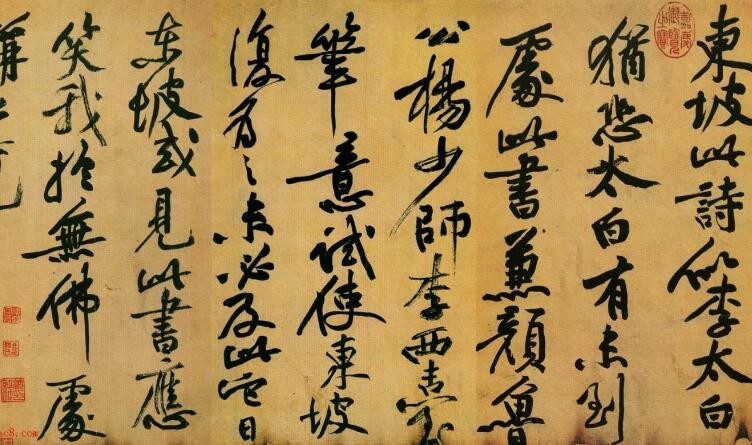 東坡此詩似李太白
猶恐太白有未到
處此書兼顏魯
公楊少師李西臺
筆意試使東坡
復為之未必及此它日
東坡或見此書應
笑我於無佛處
嘉慶御覽之寶
c8.com